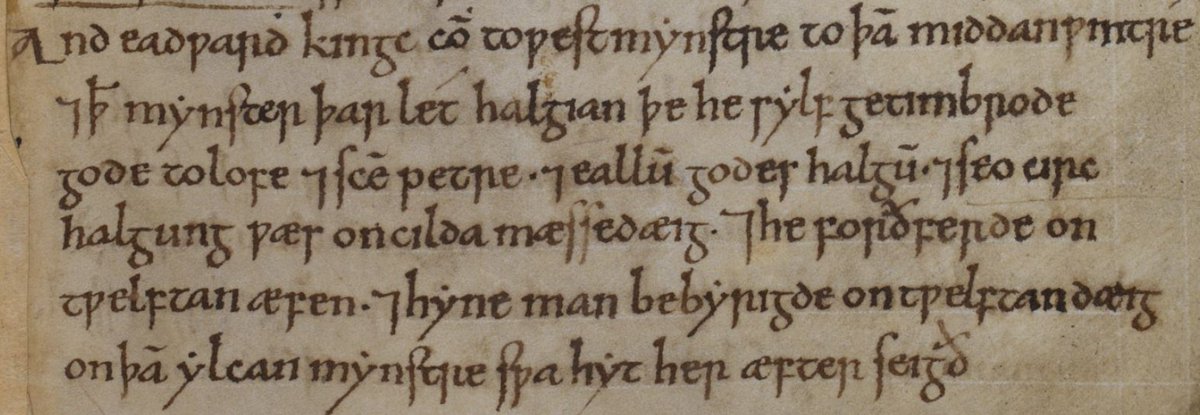 And eadƿard kingc cō to ƿestmynstre to þā middanƿintre
⁊ ꝥ mynster þar let halgian þe he sylf getimbrode
gode to lofe ⁊ scē petre · ⁊ eallū godes halgū · ⁊ seo circ
halgung ƿæs on cilda mæssedæig · ⁊ he forðferde on
tƿelftan æfen · ⁊ hyne man bebyrigde on tƿelftan dæig
on þā ylcan mynstre sƿa hyt her æfter seigð